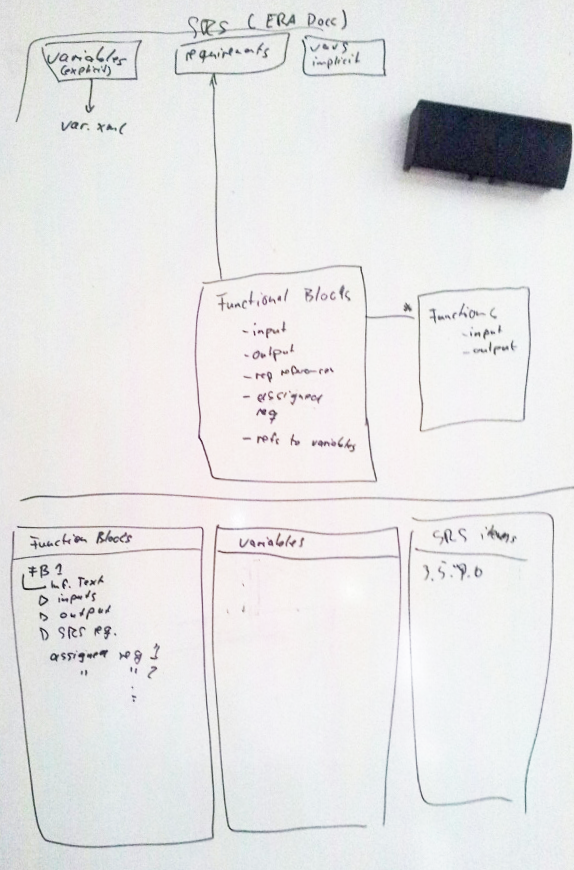 SRS (ERA Docc)
variables
(explicit)
requirements
vars
implicit
var.xml
Functional Blocks
- input
- output
- req references
- assigned
req
- refs to variables
*
Functions
- input
- output
Function Blocks
FB1
inf. Text
▷ inputs
▷ output
▷ SRS req.
assigned req 1
" " 2
:
variables
SRS items
3.5.7.6